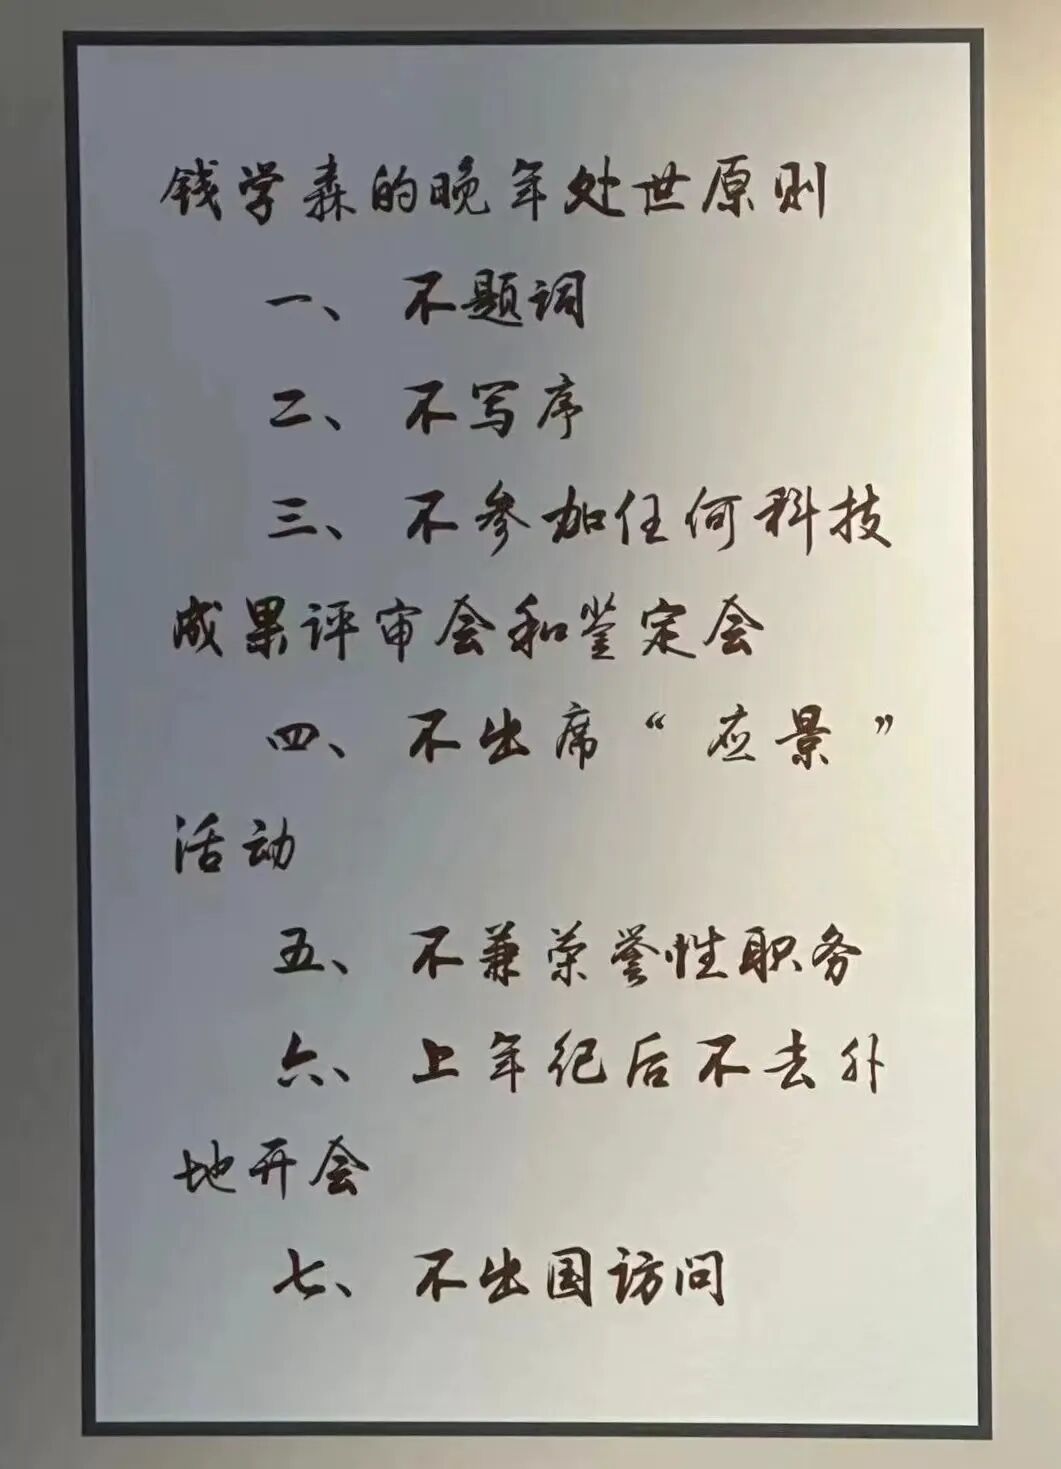 钱学森的晚年处世原则
一、不题词
二、不写序
三、不参加任何科技
成果评审会和鉴定会
四、不出席“应景”
活动
五、不兼荣誉性职务
六、上年纪后不去外
地开会
七、不出国访问